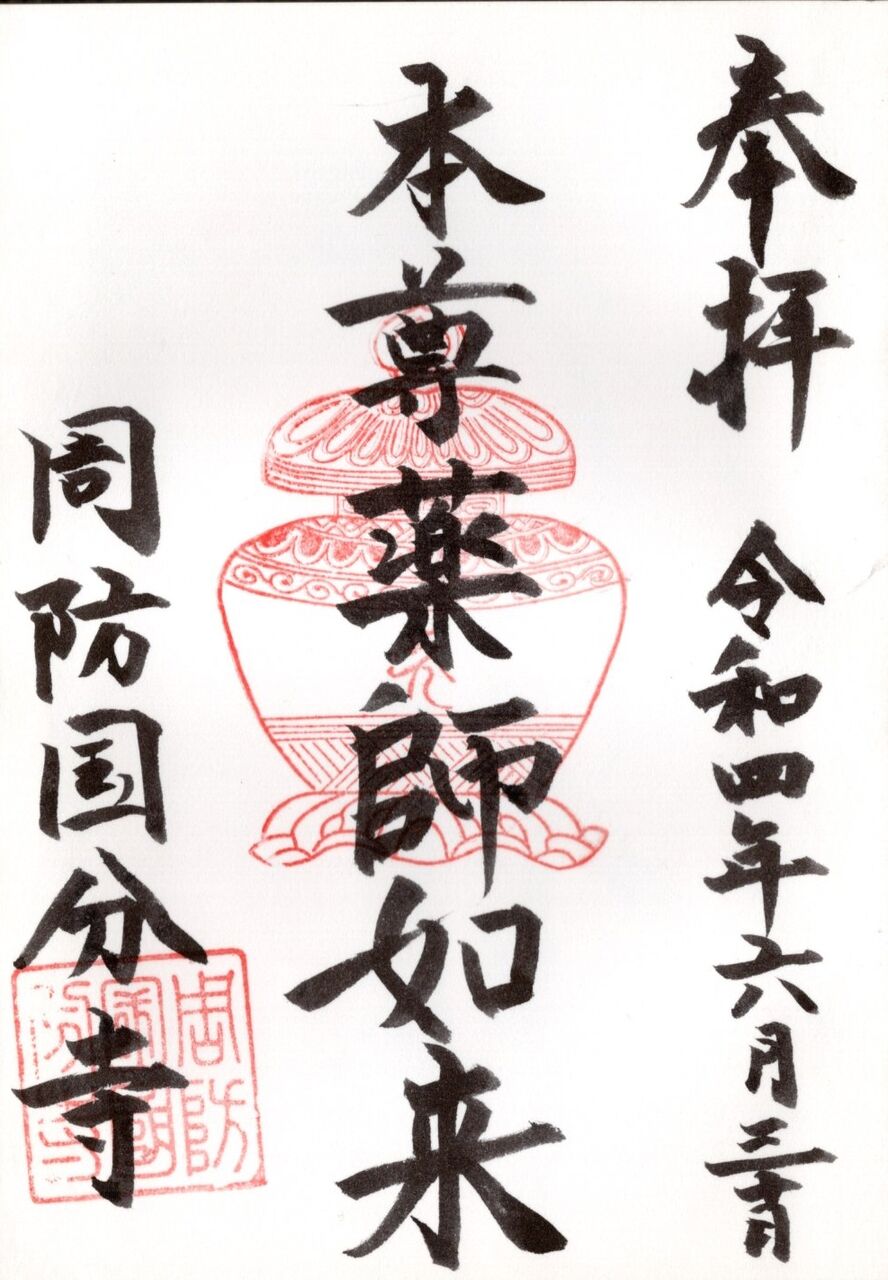 奉拝 令和四年六月三十日
本尊薬師如来
周防国分寺
周防
國